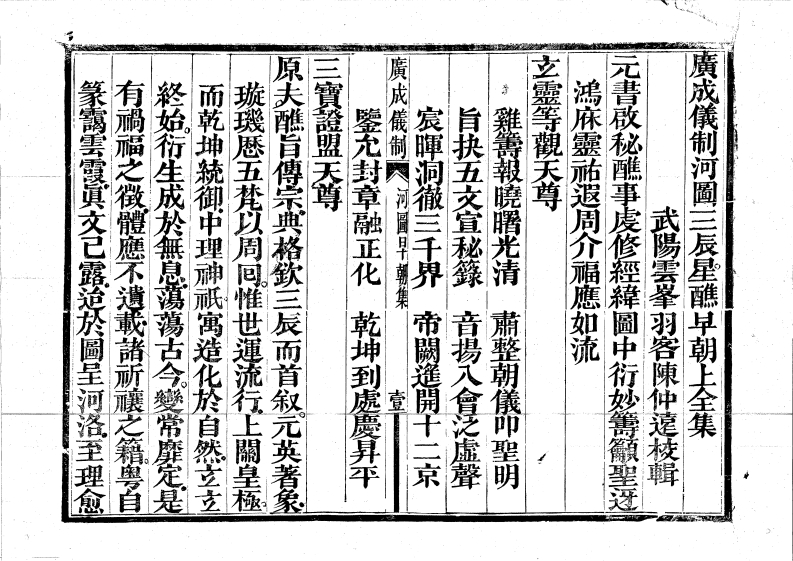 廣成儀制河圖三辰星醮早朝上全集
武陽雲峯羽客陳仲遠校輯
元書啟秘醮事虔修經緯圖中衍妙籌籲聖迓
鴻庥靈祐遐周介福應如流
玄靈等觀天尊
雞籌報曉曙光清　肅整朝儀叩聖明
旨抉五文宣秘籙　音揚入會泛虛聲
宸暉洞徹三千界　帝闕進開十二京
鑒允封章融正化　乾坤到處慶昇平
廣成儀制　河圖早朝集　壹
三寶證盟天尊
原夫醮旨傳宗典格欽三辰而首叙元英著象
璇璣歷五梵以周回惟世運流行上關皇極
而乾坤統御中理神祇寓造化於自然玄玄
終始衍生成於無息蕩蕩古今變常靡定是
有禍福之徵體應不遺載諸祈禳之籍粵自
篆靄雲霞眞文已露迨於圖呈河洛至理愈